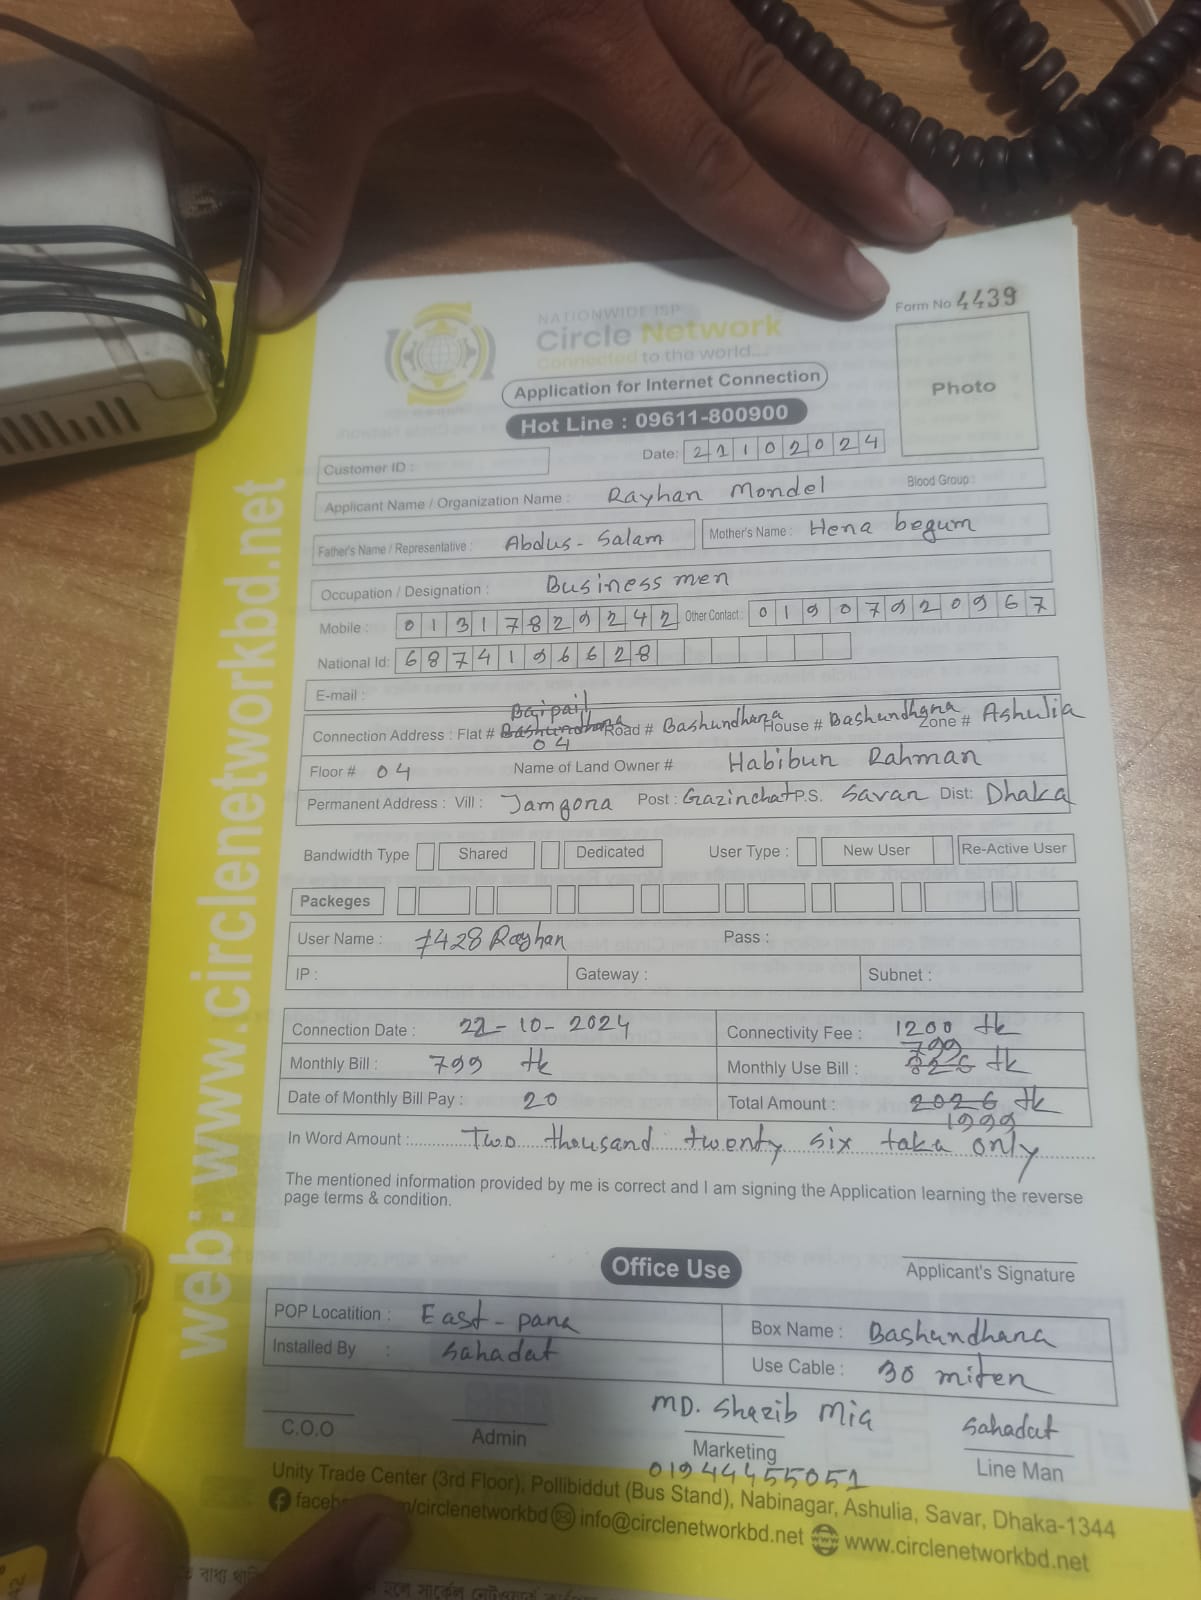 Form No 4439
NATIONWIDE ISP
Circle Network
Connected to the world...
Photo
Application for Internet Connection
Hot Line : 09611-800900
Customer ID :
Date: 21102024
Applicant Name / Organization Name : Rayhan Mondel Blood Group :
Father's Name / Representative : Abdus-Salam Mother's Name : Hena begum
Occupation / Designation : Business men
Mobile : 01317829242 Other Contact: 01907920967
National Id: 6874196628
E-mail :
Baipail
Connection Address : Flat # Bashundhara Road # Bashundhara House # Bashundhara Zone # Ashulia
04
Floor # 04 Name of Land Owner # Habibun Rahman
Permanent Address : Vill : Jamgona Post : Gazinchat P.S. Savar Dist: Dhaka
Bandwidth Type Shared Dedicated User Type : New User Re-Active User
Packeges
User Name : 7428Rayhan Pass :
IP : Gateway : Subnet :
Connection Date : 22-10-2024 Connectivity Fee : 1200 tk
799
Monthly Bill : 799 tk Monthly Use Bill : 826 tk
Date of Monthly Bill Pay : 20 Total Amount : 2026 tk
1999
In Word Amount : Two thousand twenty six taka only
The mentioned information provided by me is correct and I am signing the Application learning the reverse
page terms & condition.
Applicant's Signature
Office Use
POP Locatition : East-para Box Name : Bashundhara
Installed By : Sahadat Use Cable : 30 miter
MD. Shazib Mia Sahadat
C.O.O Admin Marketing Line Man
01944455051
Unity Trade Center (3rd Floor), Pollibiddut (Bus Stand), Nabinagar, Ashulia, Savar, Dhaka-1344
/circlenetworkbd info@circlenetworkbd.net www.circlenetworkbd.net
web: www.circlenetworkbd.net